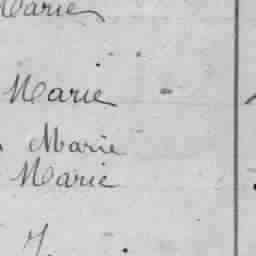 Marie
Marie -
Marie
Marie